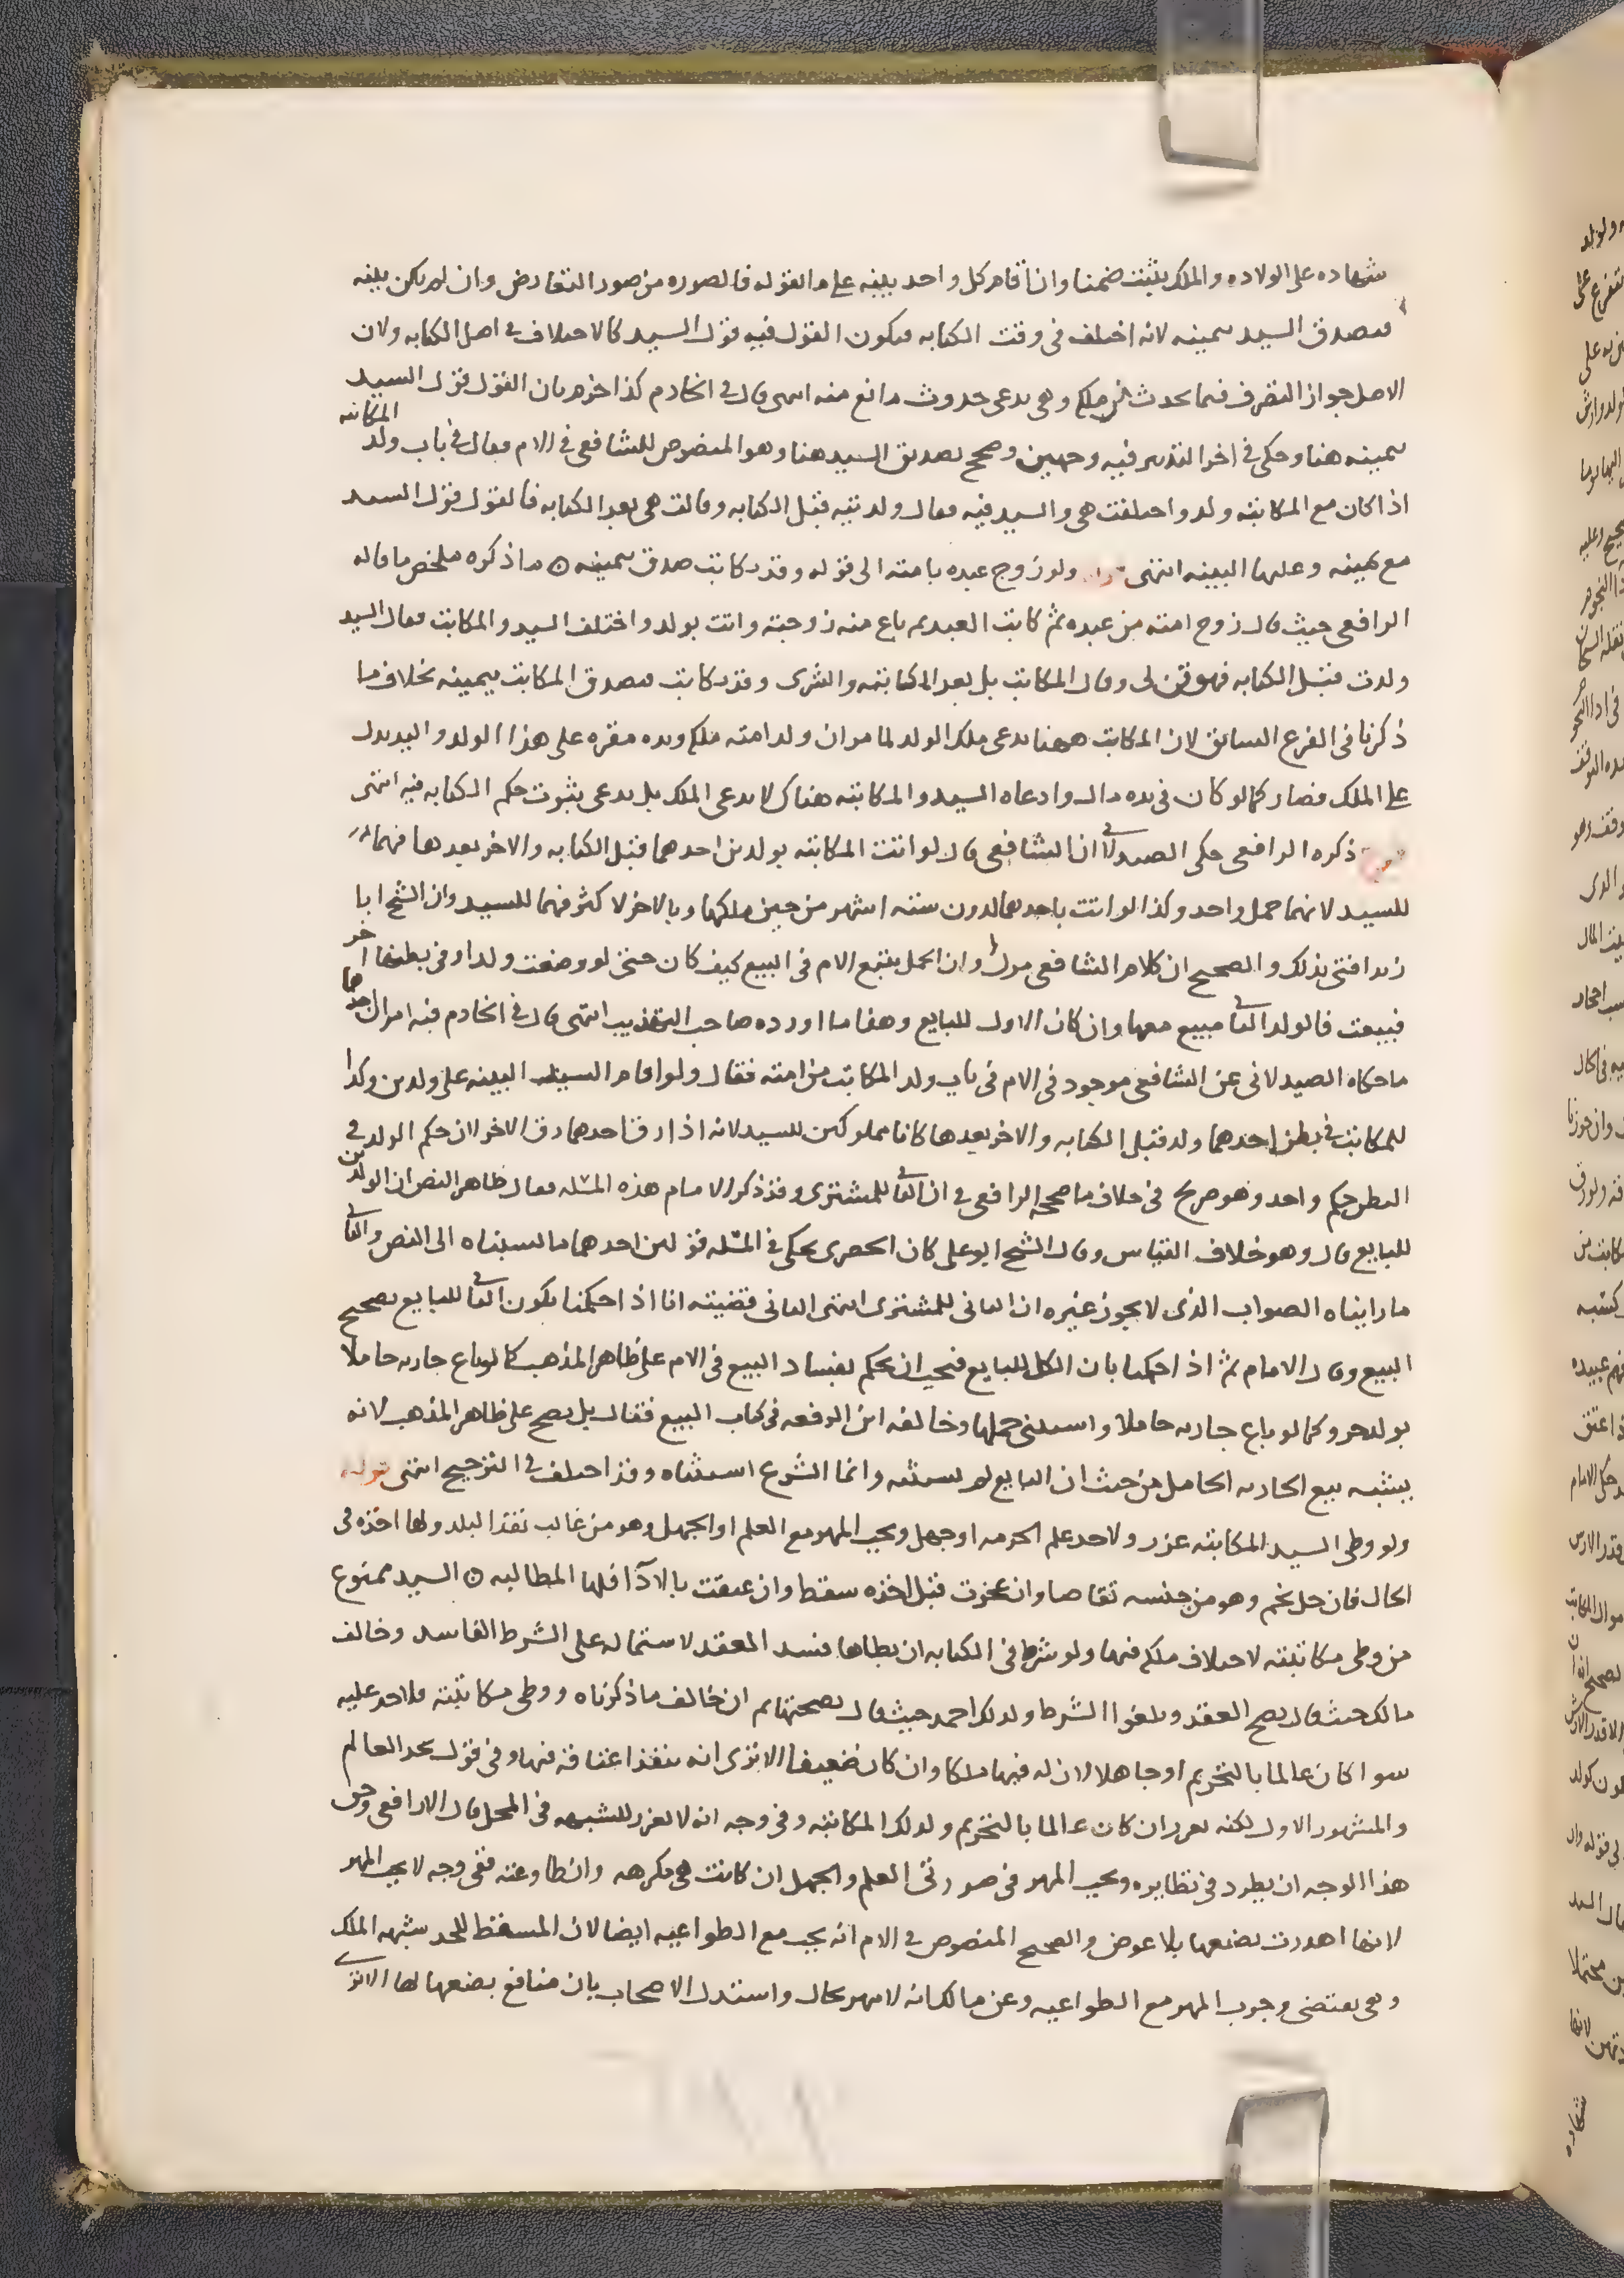 شهاده على الولاده والملك يثبت ضمنا وان اقام كل واحد بينه على ما يقوله فالصوره من صور التعارض وان لم يكن بينه
فيصدق السيد بيمينه لانه اختلف في وقت الكتابه فيكون القول فيه قول السيد كالاختلاف في اصل الكتابه ولان
الاصل جواز التصرف فيما يحدث في ملكه وهي تدعي حدوث مانع منه انتهى قال في الخادم كذا جزم بان القول قول السيد
بيمينه هنا وحكى في اخر التدبير فيه وجهين وصحح تصديق السيد هنا وهو المنصوص للشافعي في الام فقال في باب ولد المكاتبه
اذا كان مع المكاتبه ولد واختلفت هي والسيد فيه فقال ولدتيه قبل الكتابه وقالت هي بعد الكتابه فالقول قول السيد
مع يمينه وعليها البينه انتهى قوله ولو زوج عبده بامته الى قوله وقد كاتب صدق بيمينه ه ما ذكره ملخص ما قاله
الرافعي حيث قال زوج امته من عبده ثم كاتب العبد ثم باع منه زوجته واتت بولد واختلف السيد والمكاتب فقال السيد
ولدت قبل الكتابه فهو قن لي وقال المكاتب بل بعد الكتابه والشرى وقد كاتب فيصدق المكاتب بيمينه بخلاف ما
ذكرنا في الفرع السابق لان المكاتب ههنا يدعي ملك الولد لما مر ان ولد امته ملكه ويده مقره على هذا الولد واليد تدل
على الملك فصار كما لو كان في يده مال وادعاه السيد والمكاتبه هناك لا تدعي الملك بل تدعي ثبوت حكم الكتابه فيه انتهى
فرع ذكره الرافعي حكى الصيدلاني ان الشافعي قال لو اتت المكاتبه بولدين احدهما قبل الكتابه والاخر بعدها فهما
للسيد لانهما حمل واحد وكذا لو اتت باحدهما لدون سته اشهر من حين ملكها وبالاخر لاكثر فهما للسيد وان الشيخ ابا
زيد افتى بذلك والصحيح ان كلام الشافعي مول وان الحمل يتبع الام في البيع كيف كان حتى لو وضعت ولدا وفي بطنها اخر
فبيعت فالولد الثاني مبيع معها وان كان الاول للبايع وهذا ما اورده صاحب التهذيب انتهى قال في الخادم فيه امران احدهما
ما حكاه الصيدلاني عن الشافعي موجود في الام في باب ولد المكاتب من امته فقال ولو اقام السيد البينه على ولدين ولدا
للمكاتب في بطن احدهما ولد قبل الكتابه والاخر بعدها كانا مملوكين للسيد لانه اذا رق احدهما رق الاخر لان حكم الولد في
البطن حكم واحد وهو صريح في خلاف ما صححه الرافعي في ان الثاني للمشتري وقد ذكر الامام هذه المسئله فقال ظاهر النص ان الولدين
للبايع قال وهو خلاف القياس وقال الشيخ ابو علي كان الحضري يحكي في المسئله قولين احدهما ما نسبناه الى النص والثاني
ما رايناه الصواب الذي لا يجوز غيره ان الثاني للمشتري انتهى الثاني قضيته انا اذا حكمنا بكون الثاني للبايع يصحح
البيع وقال الامام ثم اذا حكمنا بان الكل للبايع فيجب ان يحكم بفساد البيع في الام على ظاهر المذهب كما لو باع جاريه حاملا
بولد حر وكما لو باع جاريه حاملا واستثنى حملها وخالفه ابن الرفعه في كتاب البيع فقال بل يصح على ظاهر المذهب لانه
يشبه بيع الجاريه الحامل من حيث ان البايع لم يستثنه وانما الشرع استثناه وقد اختلف في الترجيح انتهى قوله
ولو وطى السيد المكاتبه عزر ولا حد علم الحرمه او جهل ويجب المهر مع العلم او الجهل وهو من غالب نقد البلد ولها اخذه في
الحال فان حل نجم وهو من جنسه تقاصا وان عجزت قبل اخذه سقط وان عتقت بالاداء فلها المطالبه ه السيد ممنوع
من وطى مكاتبته لاختلاف ملكه فيها ولو شرط في الكتابه ان يطاها فسد العقد لاشتماله على الشرط الفاسد وخالف
مالك حيث قال يصح العقد ويلغوا الشرط وكذلك احمد حيث قال بصحتها ثم ان خالف ما ذكرناه ووطى مكاتبته فلا حد عليه
سوا كان عالما بالتحريم او جاهلا لان له فيها ملكا وان كان ضعيفا الا ترى انه ينفذ اعتاقه فيها وفي قول يحد العالم
والمشهور الاول لكنه يعزر ان كان عالما بالتحريم وكذلك المكاتبه وفي وجه انه لا يعزر للشبهه في المحل قال الرافعي وحق
هذا الوجه ان يطرد في نظايره ويجب المهر في صورتي العلم والجهل ان كانت هي مكرهه وان طاوعته ففي وجه لا يجب المهر
لانها اهدرت بضعها بلا عوض والصحيح المنصوص في الام انه يجب مع الطواعيه ايضا لان المسقط للحد شبهه الملك
وهي تقتضي وجوب المهر مع الطواعيه وعن مالك انه لا مهر بحال واستدل الاصحاب بان منافع بضعها لها الا ترى